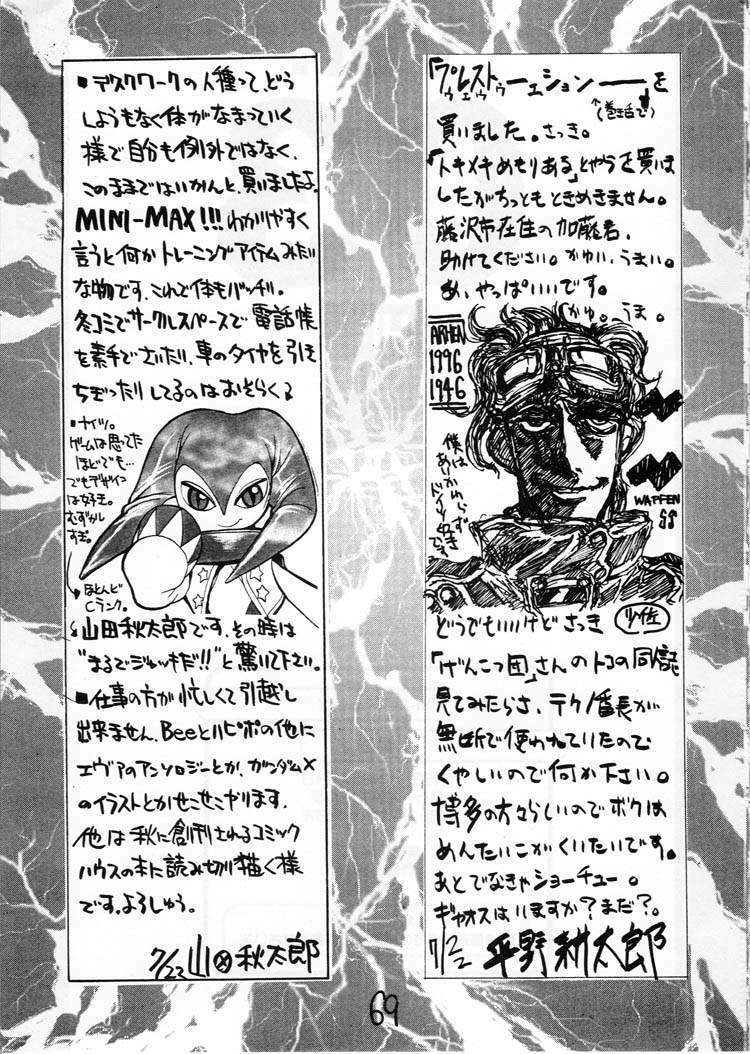 「プレストゥーエション━━を
ゥェゥ
↑(巻き舌で)
買いました。さっき。
「トキメキめもりある」とやらを買いま
したがちっともときめきません。
藤沢市在住の加藤君、
助けてください。かゆい、うまい。
あ、やっぱいいです。
かゆ。うま。
ARMEN
1996
1946
僕は
あいかわらず
ドイツ好き
です。
WAFFEN
SS
少佐
どうでもいいけどさっき
「げんこつ団」さんのトコの同人誌
見てみたらさ、テクノ番長が
無断で使われていたので
くやしいので何か下さい。
博多の方々らしいのでボクは
めんたいこがくいたいです。
あとでなきゃショーチュー。
ギャオスはいますか?まだ?。
7/22 平野耕太郎
■デスクワークの人種って、どう
しようもなく体がなまっていく
様で自分も例外ではなく、
このままではいかんと、買いましたよ。
MINI-MAX!!!わかりやすく
言うと何かトレーニングアイテムみたい
な物です、これで体もバッチリ。
冬コミでサークルスペースで電話帳
を素手でさいたり、車のタイヤを引き
ちぎったりしてるのはおそらく
・ナイツ。
ゲームは思ってた
ほどでも…
でもデザイン
は好き。
むずかし
すぎ。
ほとんど
Cランク。
山田秋太郎です、その時は
"まるでジャッキだ!!"と驚いて下さい。
■仕事の方が忙しくて引越し
出来ません、Beeとハピポの他に
エヴァのアンソロジーとか、ガンダムX
のイラストとかせこせこやります、
他は秋に創刊されるコミック
ハウスの本に読み切り描く様
です。よろしゅう。
7/22 山⊗秋太郎
69